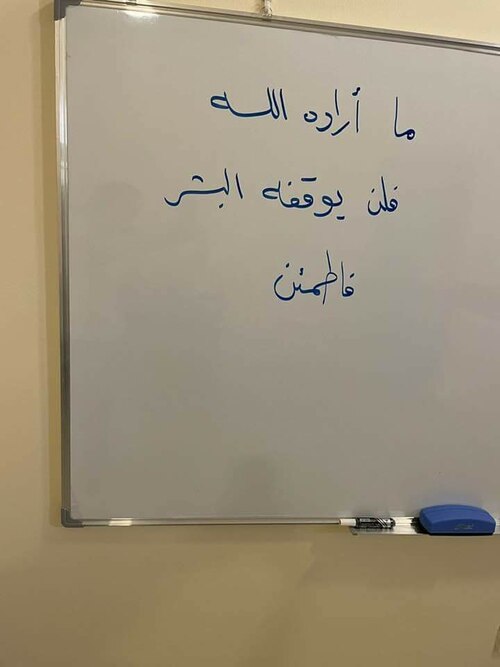 ما أراده الله
فلن يوقفه البشر
فاطمئن